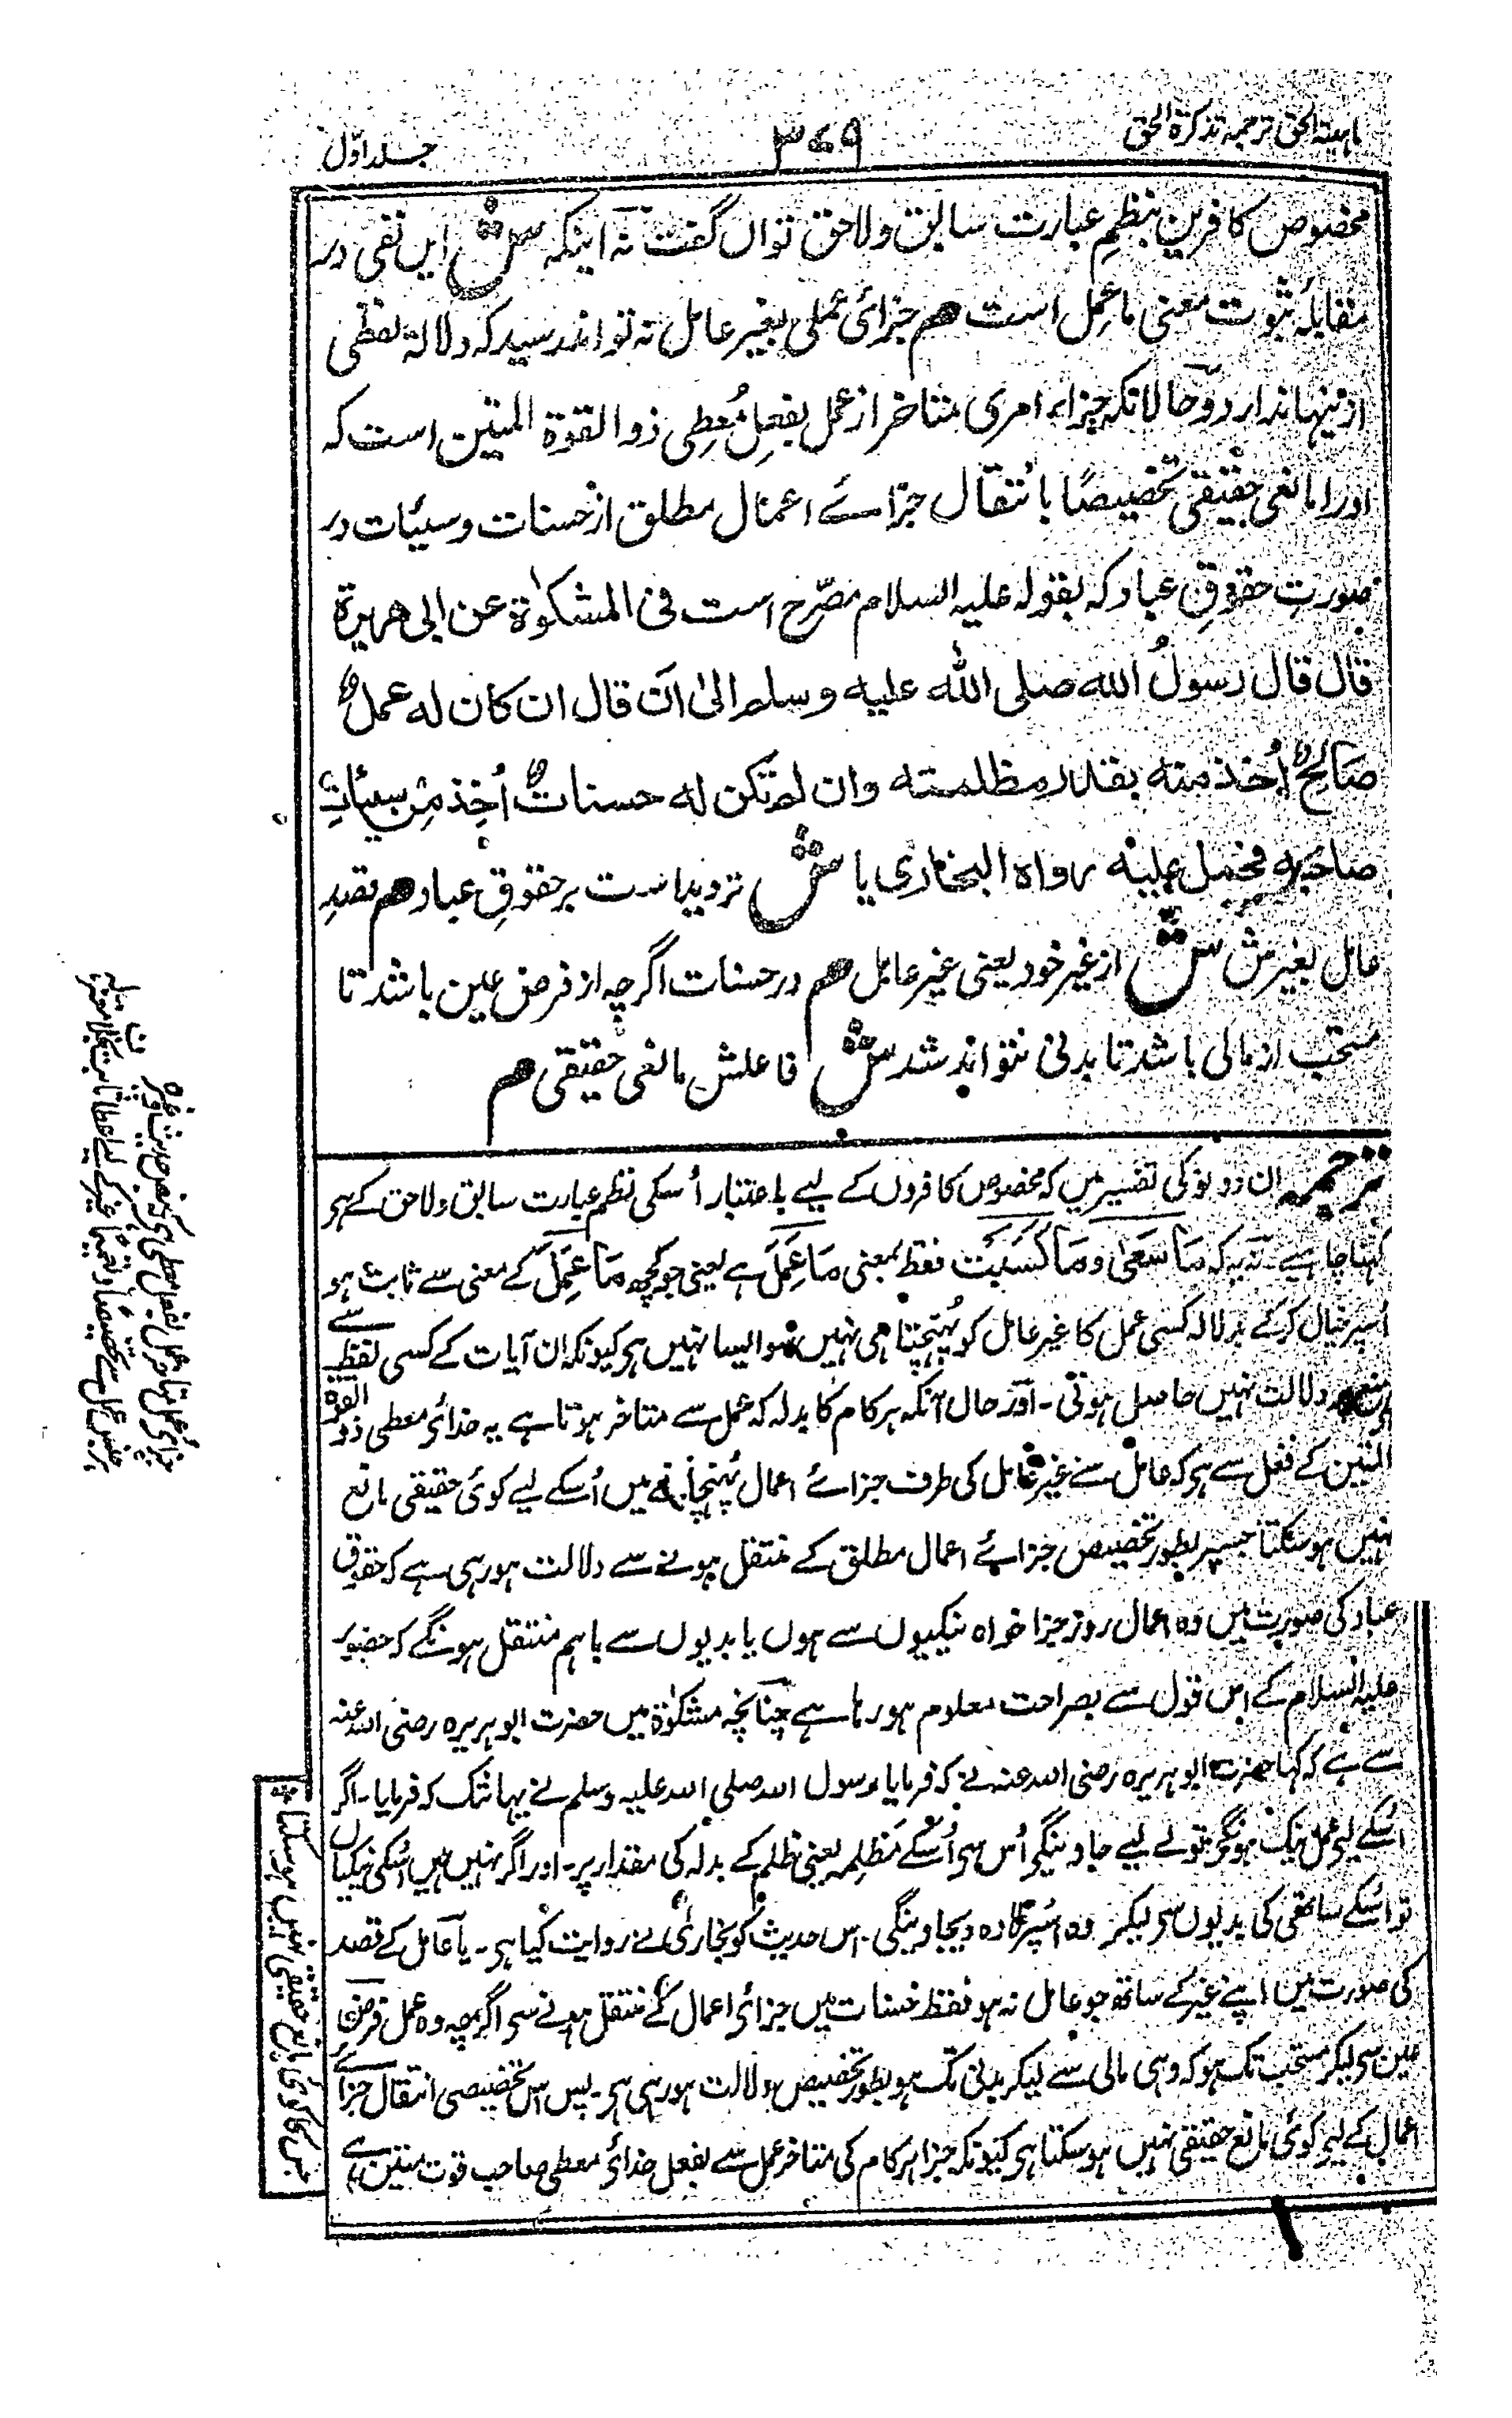 ماہیتہ الحق ترجمہ تذکرۃ الحق
۳۷۹
جلد اوّل
مخصوص کافرین بنظمِ عبارت سابق ولاحق توان گفت نہ اینکہ ش این نفی در
مقابلہ ثبوت معنی ما عمِل است ھم جزائ عملی بغیر عامل نہ تواند رسید کہ دلالۃ لفظی
ازینہا ندارد و حالانکہ جزاء امری متاخر از عمل بفعلِ مُعطِی ذوالقوۃ المتین است کہ
اورا مانعی حقیقی تخصیصًا بانتقال جزائے اعمال مطلق از حسنات وسیئات در
صورتِ حقوقِ عباد کہ بقولہ علیہ السلام مصرّح است فی المشکوٰۃ عن ابی ھریرۃ
قال قال رسولُ اللہ صلی اللہ علیہ وسلم الیٰ ان قال ان کان لہ عملٌ
صَالحٌ اُخذ منہ بقدر مظلمتہ وان لم تکن لہ حسناتٌ اُخِذ مِن سیئاتِ
صاحبہ فحمل علیہ رواہ البخاری یا ش تردید است بر حقوقِ عباد ھم بقصدِ
عامل بغیرش ش از غیر خود یعنی غیر عامل ھم در حسنات اگرچہ از فرض عین باشد تا
مستحب از مالی باشد تا بدنی نتواند شد ش فاعلش مانعی حقیقی ھم
ترجمہ ان دونو کی تفسیر میں کہ مخصوص کافروں کے لیے باعتبار اُسکی نظم عبارت سابق ولاحق کے ہر
کہنا چاہیے۔ نہ یہ کہ مَا سَعٰی ومَا کَسَبَت فقط بمعنی مَا عَمِلَ ہے یعنی جو کچھ مَا عَمِلَ کے معنی سے ثابت ہو
اسپر خیال کر کے بدلا کسی عمل کا غیر عامل کو پُہنچتا ہی نہیں سو ایسا نہیں ہر کیونکہ ان آیات کے کسی لفظ سے
دلالت نہیں حاصل ہوتی۔ اور حال آنکہ ہر کام کا بدلہ کہ عمل سے متاخر ہوتا ہے یہ خدائ معطی ذو القوۃ
المتین کے فعل سے ہر کہ عامل سے غیر عامل کی طرف جزائے اعمال پُہنچانے میں اُسکے لیے کوئ حقیقی مانع
نہیں ہو سکتا جسپر بطور تخصیص جزائے اعمال مطلق کے منتقل ہونے سے دلالت ہو رہی ہے کہ حقوق
عباد کی صورت میں وہ اعمال روز جزا خواہ نیکیوں سے ہوں یا بدیوں سے باہم منتقل ہونگے کہ حضور
علیہ السلام کے اس قول سے بصراحت معلوم ہو رہا ہے چنانچہ مشکوٰۃ میں حضرت ابو ہریرہ رضی اللہ عنہ
سے ہے کہ کہا حضرت ابو ہریرہ رضی اللہ عنہ نے کہ فرمایا رسول اللہ صلی اللہ علیہ وسلم نے یہانتک کہ فرمایا۔ اگر
اُسکے لیے عمل نیک ہونگے تو لے لیے جاوینگے اُس سے اُسکے مَظلمہ یعنی ظلم کے بدلہ کی مقدار پر۔ اور اگر نہیں ہیں اُسکی نیکیاں
تو اُسکے ساتھی کی بدیوں سے لیکر وہ اسپر لادہ دیجاوینگی۔ اس حدیث کو بخاری نے روایت کیا ہر۔ یا عامل کے قصد
کی صورت میں اپنے غیر کے ساتھ جو عامل نہ ہو فقط حسنات میں جزائ اعمال کے منتقل ہونے سے اگرچہ وہ عمل فرض
عین سے لیکر مستحب تک ہو کہ وہی مالی سے لیکر بدنی تک ہو بطور تخصیص دلالت ہو رہی ہر۔ پس اس تخصیصی انتقال جزائے
اعمال کے لیے کوئ مانع حقیقی نہیں ہو سکتا ہر کیونکہ جزا ہر کام کی متاخر عمل سے بفعل خدائ معطی صاحب قوت متین ہے
جس کا کوئ مانع حقیقی نہیں ہو سکتا